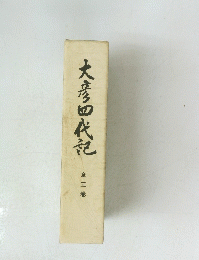 大彦四代記
全二巻